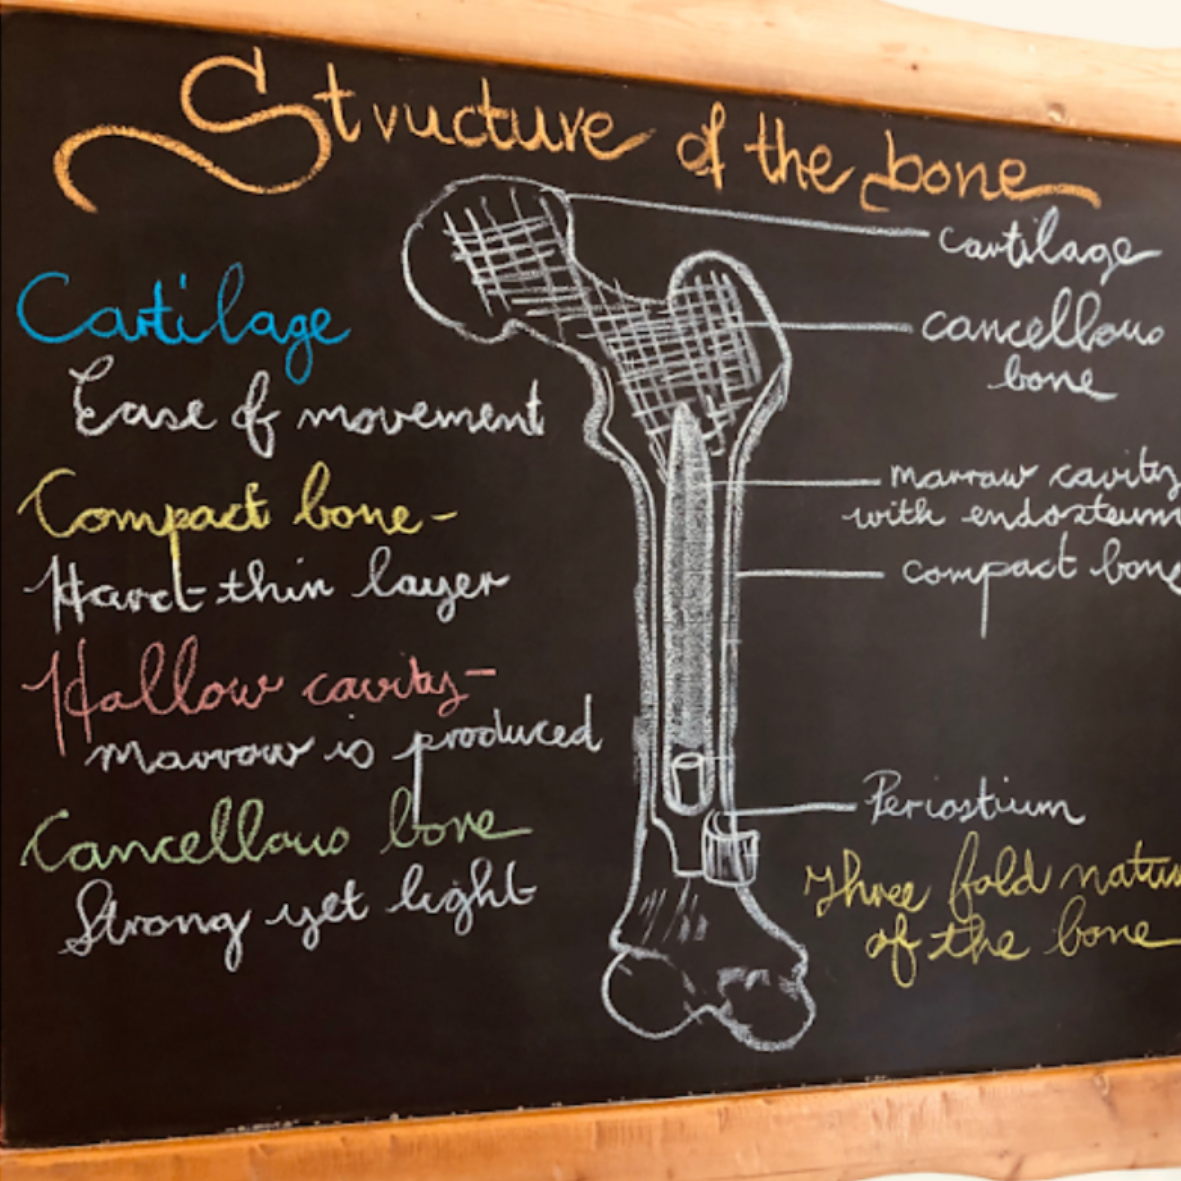 Structure of the bone
Cartilage
Ease of movement
Compact bone -
Hard thin layer
Hallow cavity -
Marrow is produced
Cancellous bone
Strong yet light
cartilage
cancellous
bone
marraw cavity
with endosteum
compact bone
Periostium
Three fold natur
of the bone